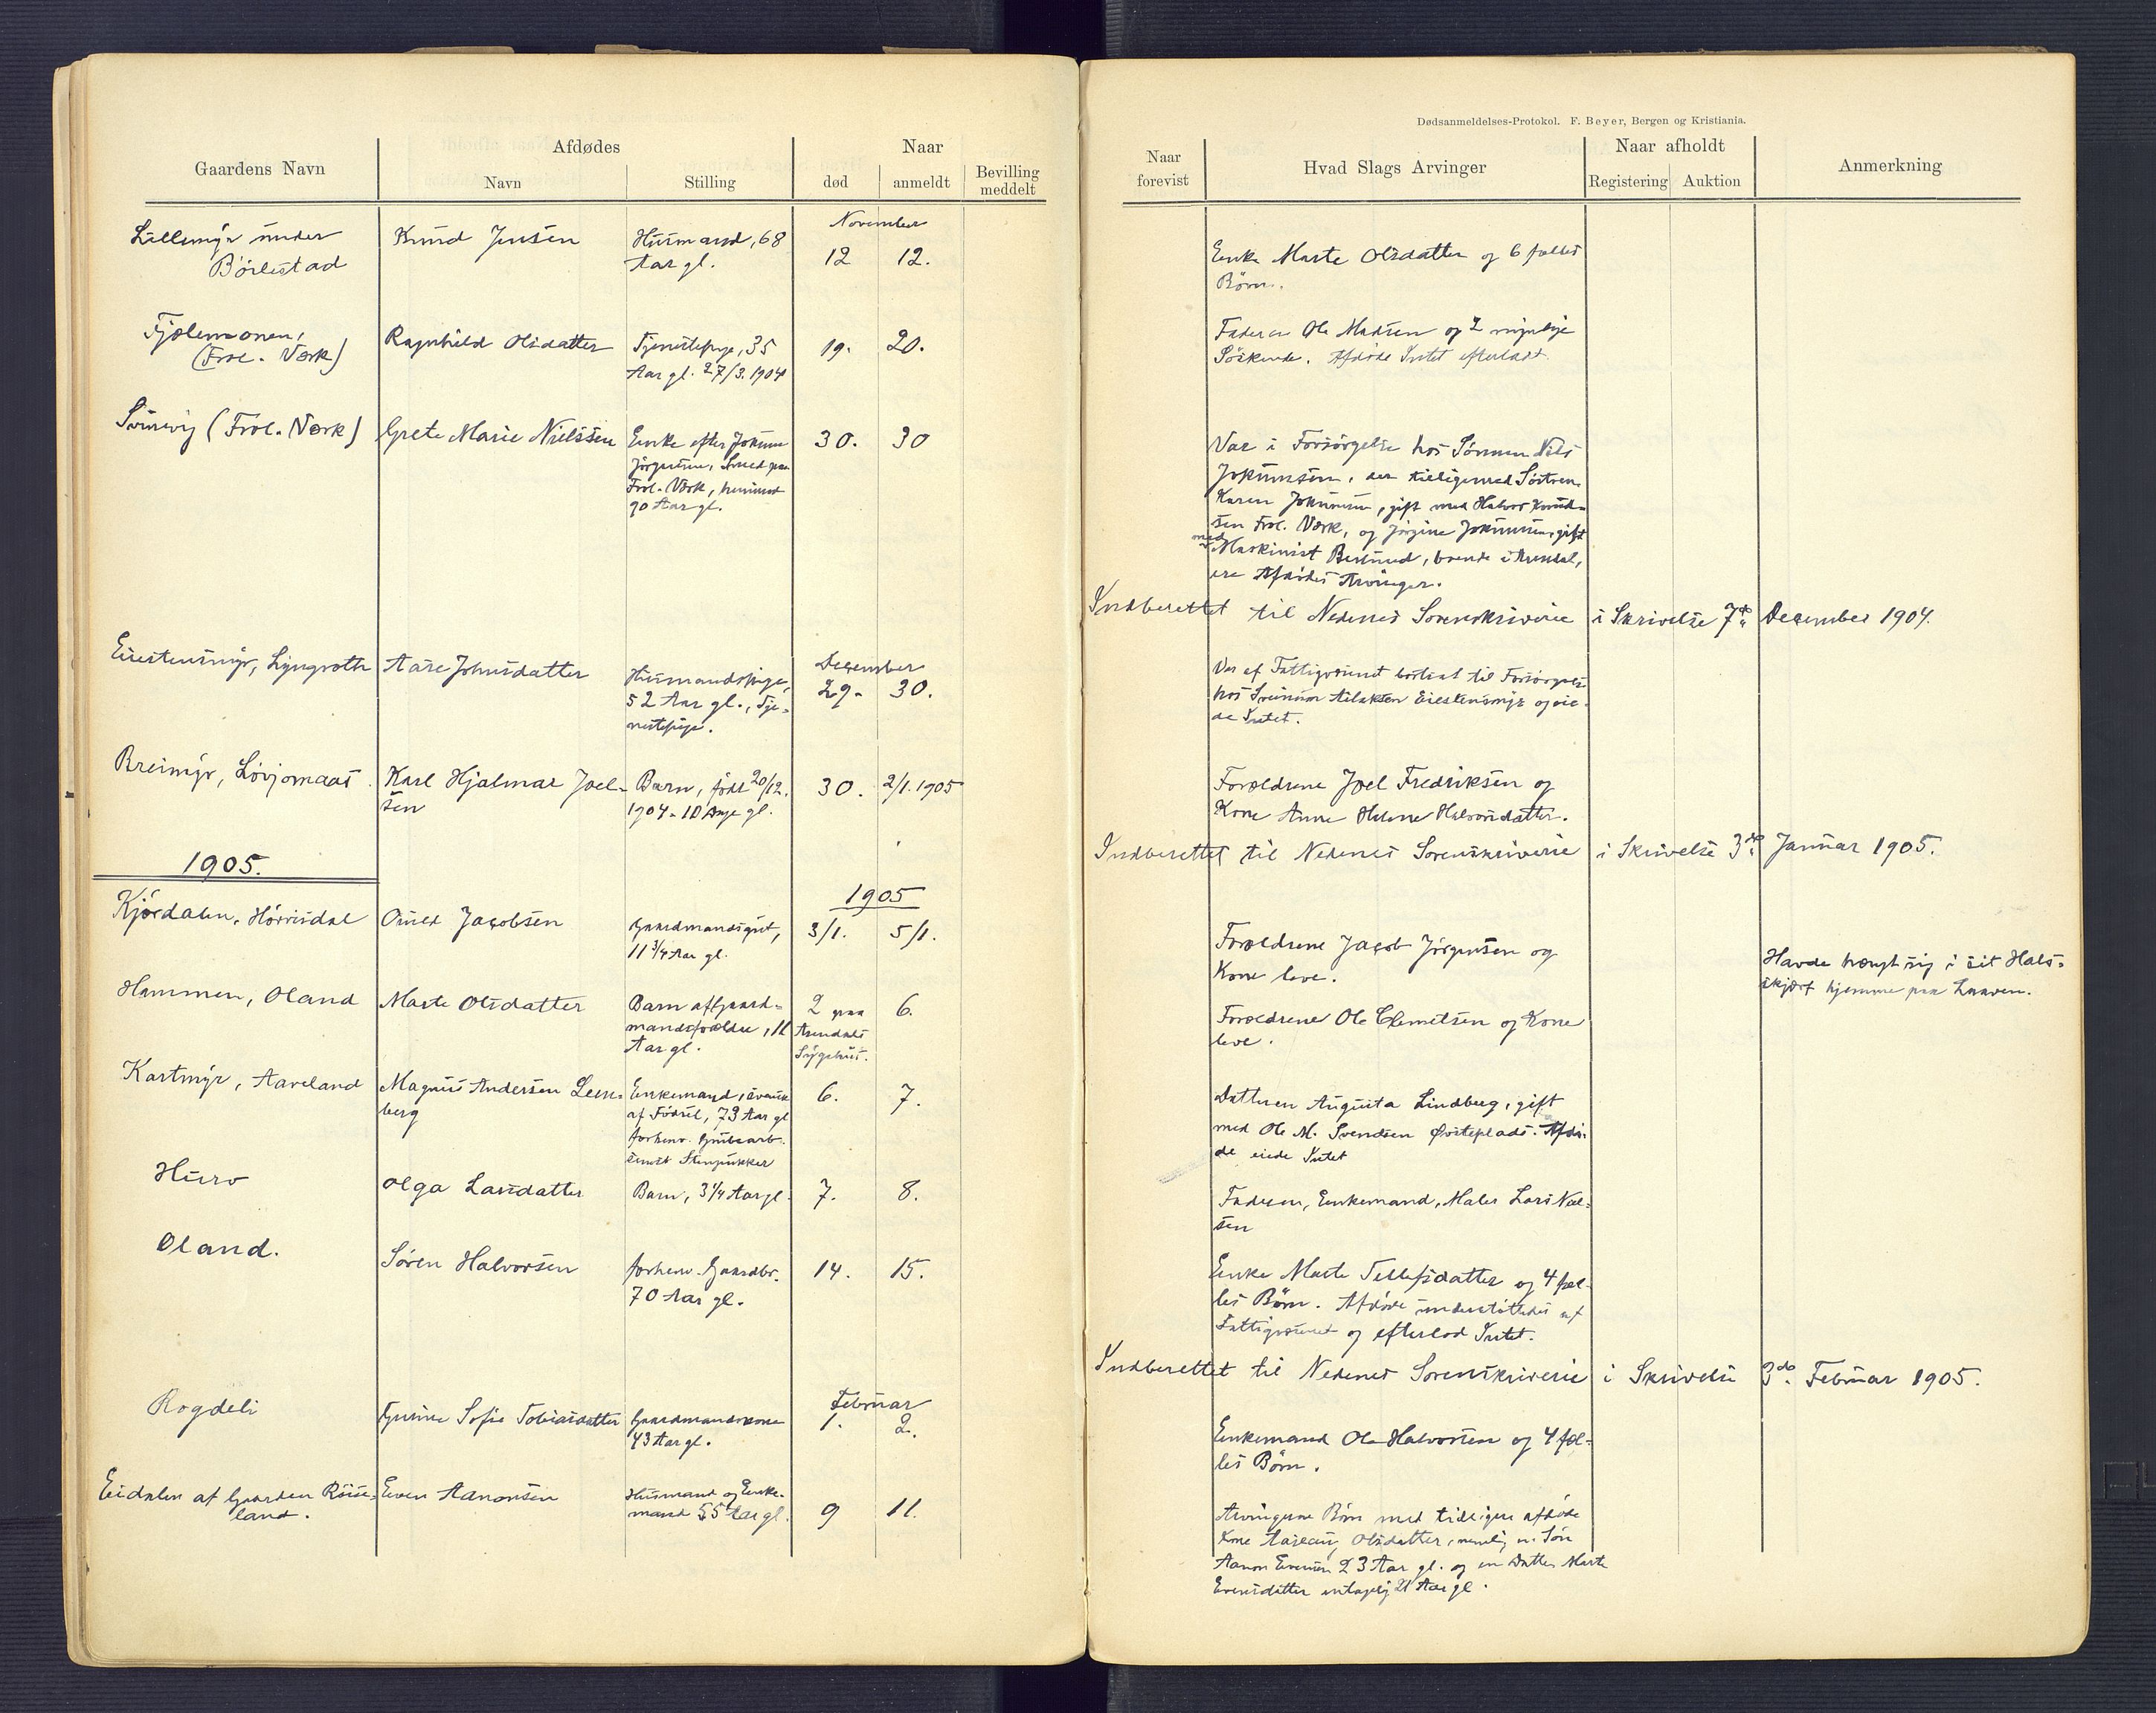 Dødsanmeldelses-Protokol. F. Beyer, Bergen og Kristiania.
Gaardens Navn
Afdødes
Navn
Stilling
Naar
død
anmeldt
Bevilling
meddelt
Naar
forevist
Hvad Slags Arvinger
Naar afholdt
Registering
Auktion
Anmerkning
Lillemyr under
Börlestad
Knud Jensen
Husmand, 68
Aar gl.
November
12
12.
Enke Marte Olsdatter og 6 fælles
Börn.
Fjælemonen,
(Frol. Værk)
Ragnhild Olsdatter
Tjenestepige, 35
Aar gl. 27/3. 1904
19.
20.
Faderen Ole Madsen og 2 myndige
Söskende. Afdöde Intet efterladt.
(Frol. Værk)
Grete Marie Nielssen
Enke efter Jokum
Jörgensen, Smed paa
Frol. Værk, henimod
90 Aar gl.
30.
30
Var i Forsörgelse hos Sönnen Nils
Jokumsen, der tilligemed Söstren
Karen Jokumsen, gift med Halvor Knud-
sen Frol. Værk, og Jörgine Jokumsen, gift
med
Maskinist Berlund, boende i Arendal,
ere Afdödes Arvinger.
Indberettet til Nedenes Sorenskriverie i Skrivelse 7de December 1904.
Eiestensmyr, Lyngroth
Aase Johnsdatter
Husmandspige,
52 Aar gl., Tje-
nestepige.
December
29.
30.
Var af Fattigvæsenet bortsat til Forsörgelse
hos Aslaksen Eiestensmyr og eie-
de Intet.
Breimyr, Lövjomaas.
Karl Hjalmar Joel-
sen
Barn, födt 20/12.
1904. 10 Dage gl.
30.
2/1. 1905
Forældrene Joel Fredriksen og
Kone Anne Helene Halvorsdatter.
Indberettet til Nedenes Sorenskriverie i Skrivelse 3de Januar 1905.
1905.
1905
Kjørdalen, Hørrisdal
Jacobsen
Gaardmandsgut,
11 3/4 Aar gl.
3/1.
5/1.
Forældrene Jacob Jörgensen og
Kone leve.
Havde hængt sig i sit Hals-
skjærf hjemme paa Laaven.
Hammen, Oland
Marte Olsdatter
Barn af Gaard-
mandsforældre, 11
Aar gl.
2 paa
Arendals
Sygehus.
6.
Forældrene Ole Clemetsen og Kone
leve.
Kartmyr, Aaveland
Magnus Andersen Leen-
berg
Enkemand, svensk
af Födsel, 73 Aar gl
forhenv. Grubearb.
samt Stenpukker
6.
7.
Datteren Augusta Lindberg, gift
med Ole M. Svendsen Østeplads. Afdö-
de eiede Intet
Hurv
Olga Larsdatter
Barn, 3 1/4 Aar gl.
7.
8.
Faderen, Enkemand, Maler Lars Næl-
sen
Oland.
Sören Halvorsen
forhenv. Gaardbr.
70 Aar gl.
14.
15.
Enke Marte Tellefsdatter og 4 fæl-
les Börn. Afdöde understöttedes af
Fattigvæsenet og efterlod Intet.
Indberettet til Nedenes Sorenskriverie i Skrivelse 3de Februar 1905.
Rogdeli
Gurine Sofie Tobiasdatter
Gaardmandskone
43 Aar gl.
Februar
1.
2.
Enkemand Ole Halvorsen og 4 fæl-
les Börn.
Eidalen af Gaarden Röise-
land.
Even Aanonsen
Husmand og Enke-
mand 55 Aar gl.
9
11.
Arvingerne Börn med tidligere afdöde
Kone Olsdatter, nemlig en Sön
Aanon Evensen 23 Aar gl. og en Datter Marte
Evensdatter 21 Aar gl.